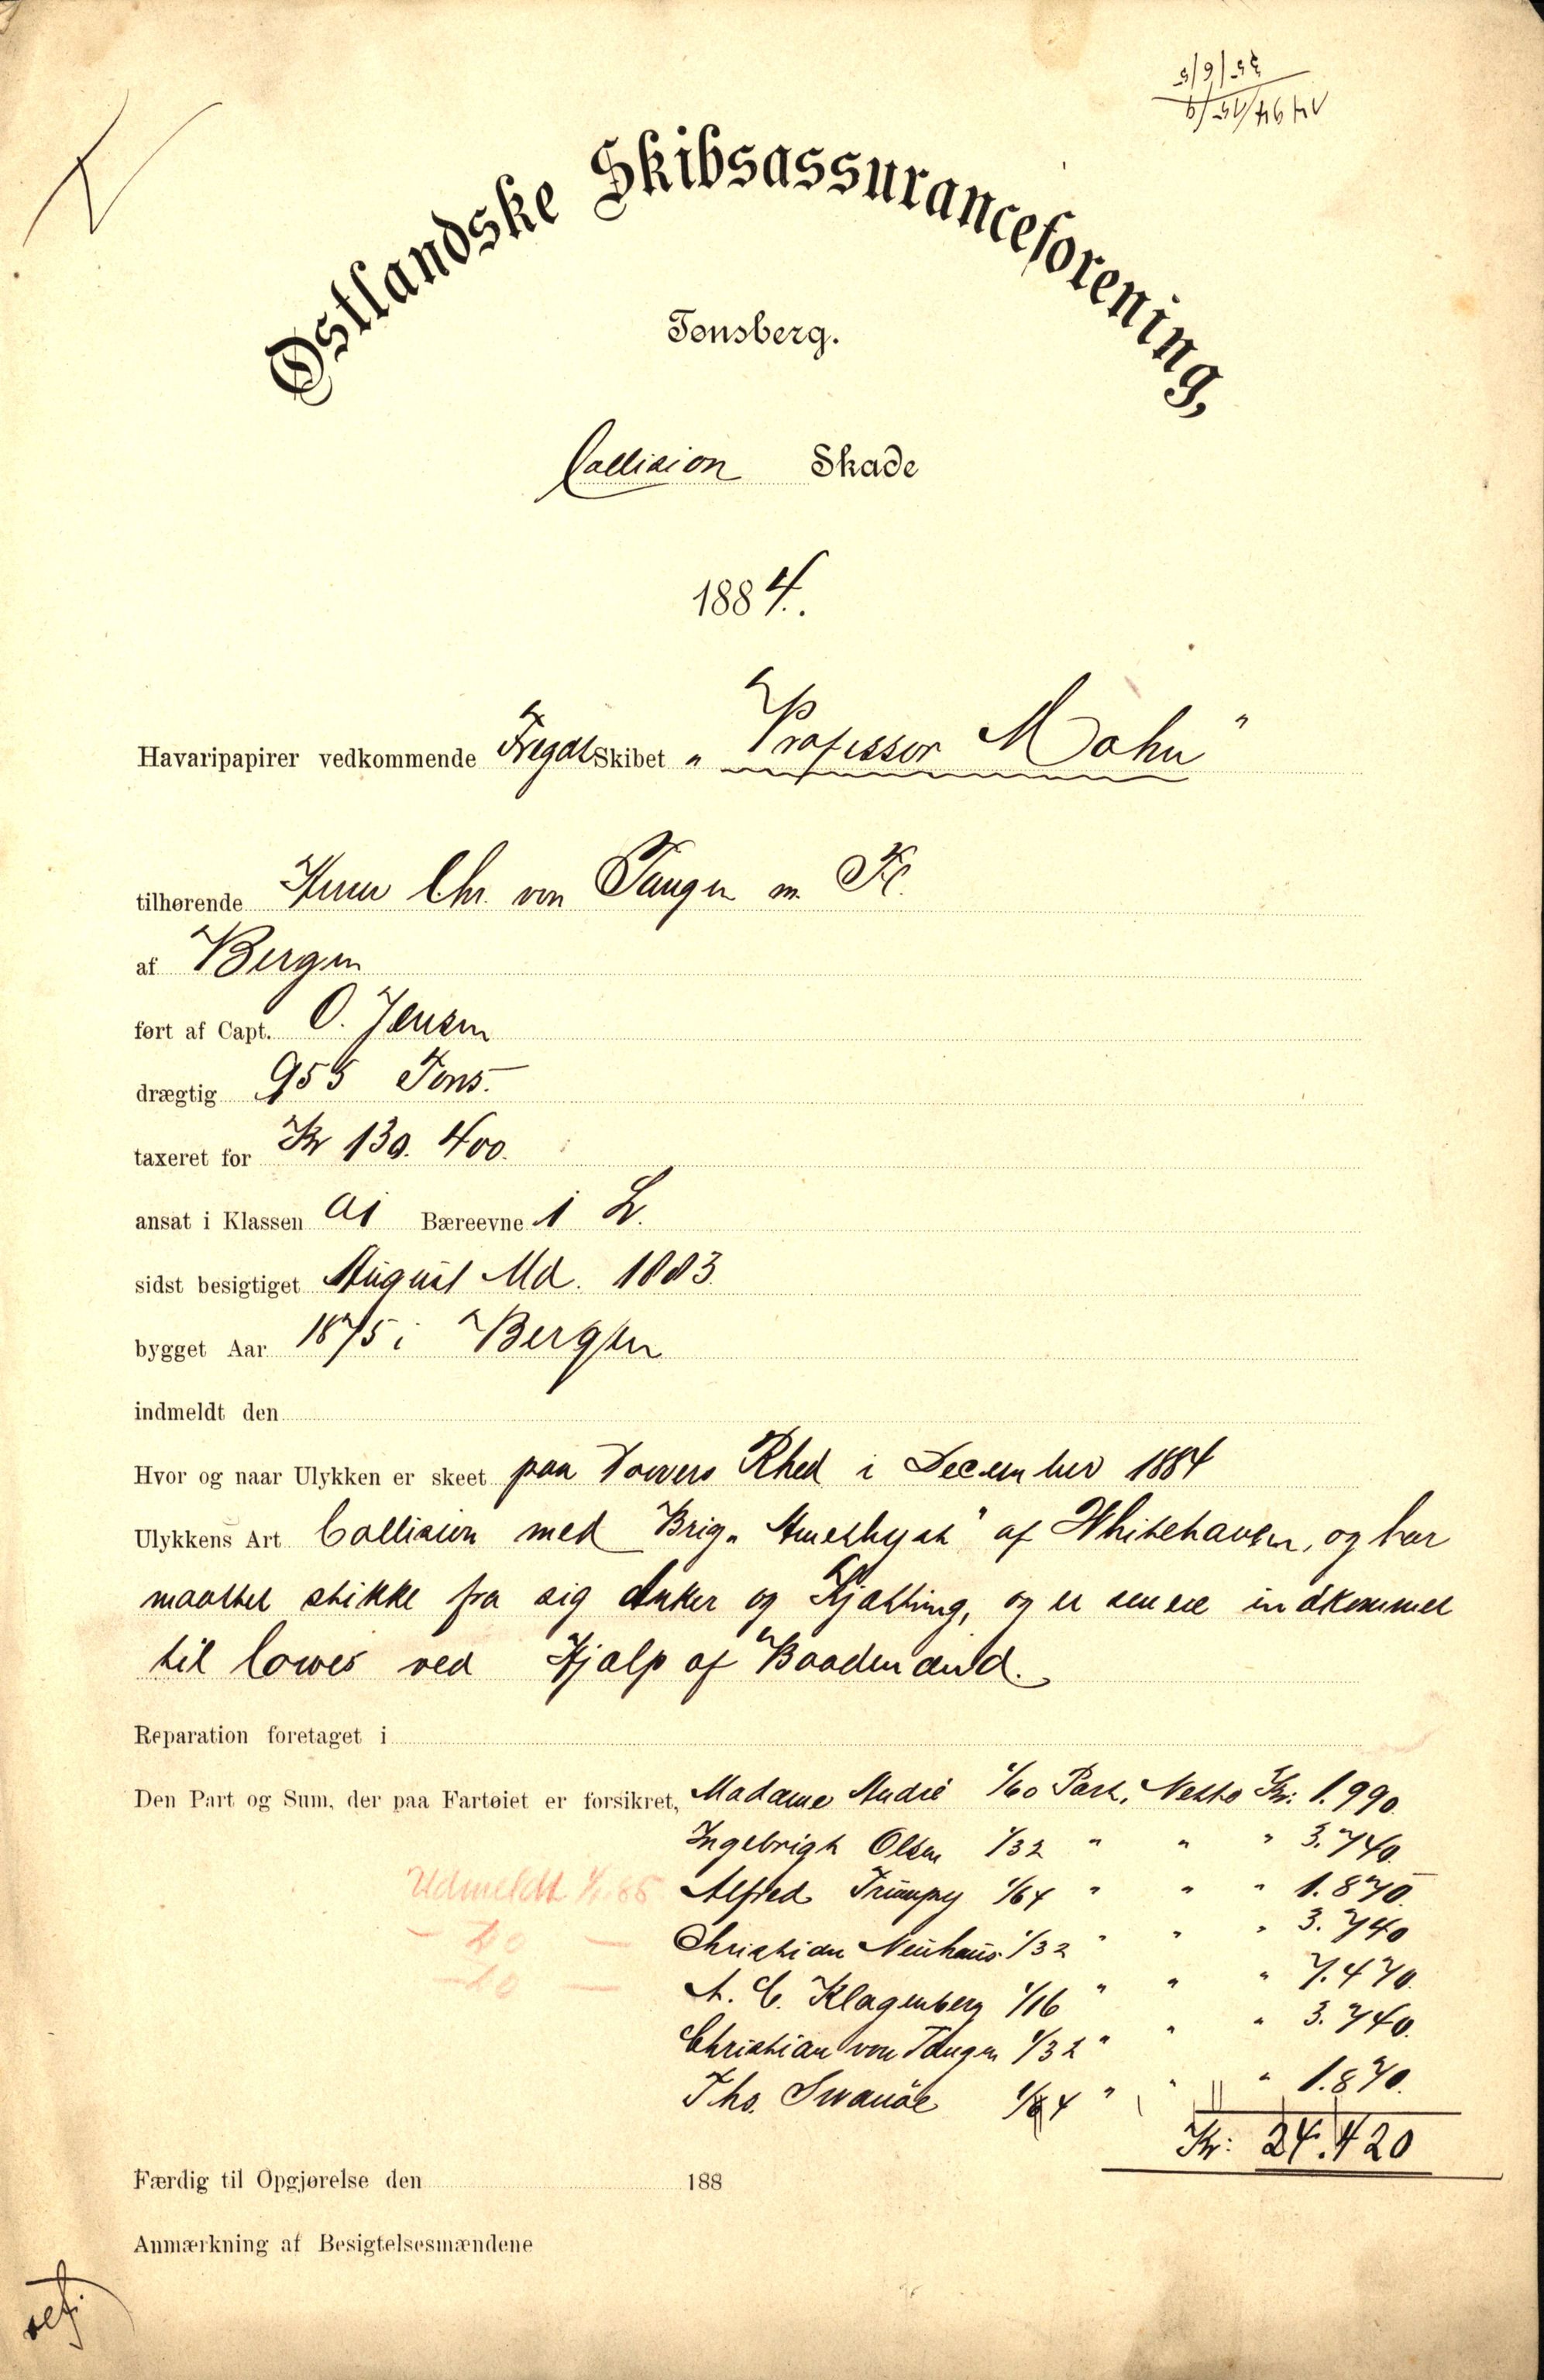 Østlandske Skibsassuranceforening,
Tønsberg.
Collision Skade
1884.
Havaripapirer vedkommende Fregatskibet „Professor Mohn"
tilhørende Herrer Chr. von Tangen m. Fl.
af Bergen
ført af Capt. O. Jensen
drægtig 955 Tons.
taxeret for Kr 139.400.
ansat i Klassen A1 Bæreevne 1 L.
sidst besigtiget August Md. 1883.
bygget Aar 1875 i Bergen
indmeldt den
Hvor og naar Ulykken er skeet paa Downs Rhed i December 1884
Ulykkens Art Collision med Brig „Amethyst" af Whitehaven, og har
maattet stikke fra sig Anker og Kjætting, og er senere indkommet
til Cowes ved Hjælp af Baadmænd.
Reparation foretaget i
Den Part og Sum, der paa Fartøiet er forsikret, Madame Andre 1/60 Part, Netto Kr: 1.990.
Ingebrigt Olsen 1/32 " " " 3.740.
Udmeldt 1/1.85 Alfred Trumpy 1/64 " " " 1.870.
- Do - Christian Neuhaus 1/32 " " " 3.740
- Do - A. C. Klagenberg 1/16 " " " 7.470.
Christian von Tangen 1/32 " " " 3.740.
Ths. Swanöe 1/64 " " " 1.870.
Kr: 24.420
Færdig til Opgjørelse den 188
Anmærkning af Besigtelsesmændene